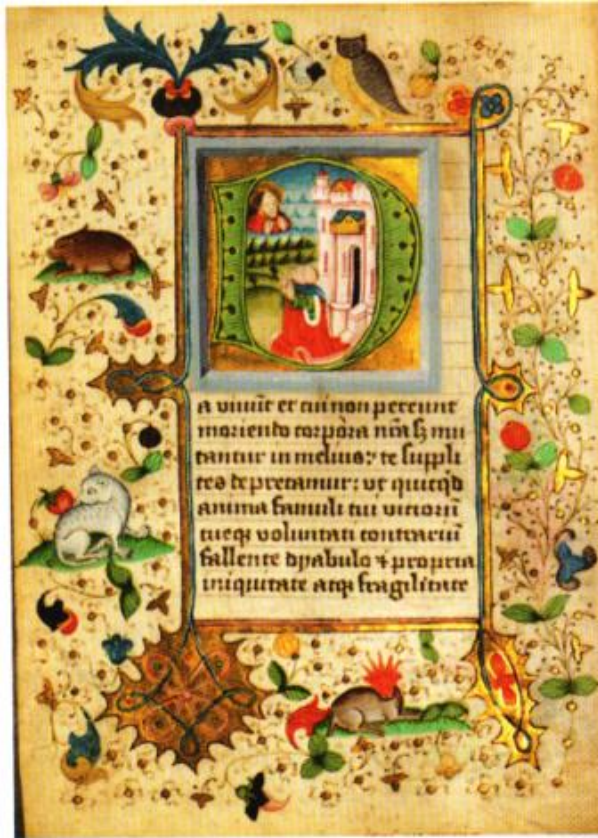 D
a viuūt et cui non pereunt
moriendo corpora nr̄a ſꝫ mu
tantur in melius: te ſuppli
tes deprecamur: vt quicq̇d
anima famuli tui vicioꝝ
tueqꝫ voluntati contrariū
fallente dyabulo ⁊ propria
iniquitate atqꝫ fragilitate